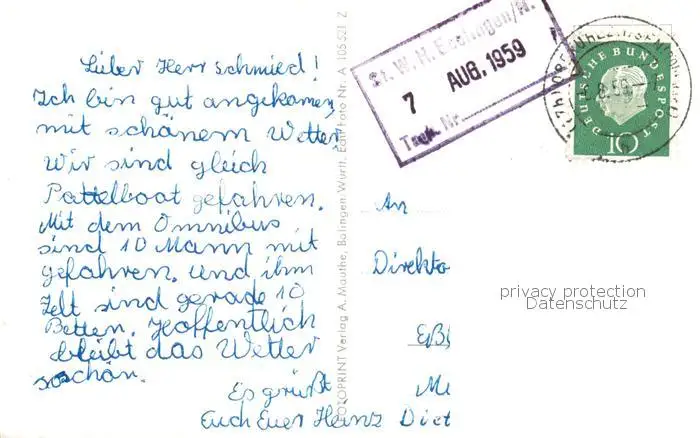 Lieber Herr Schmied!
Ich bin gut angekomen,
mit schönem Wetter.
Wir sind gleich
Pattelboot gefahren.
Mit dem Omnibus
sind 10 Mann mit
gefahren. und ihm
Zelt sind gerade 10
Betten. Hoffentlich
bleibt das Wetter
so schön.
Es grüßt
Euch Euer Heinz Diet
FOTOPRINT Verlag A. Mauthe, Bölingen, Württ. Echt Foto Nr. A 105 521 Z
St. W. H. Esslingen/N.
7 AUG. 1959
Tagb. Nr.
DEUTSCHE BUNDESPOST
10
An
Direkto
privacy protection
Datenschutz